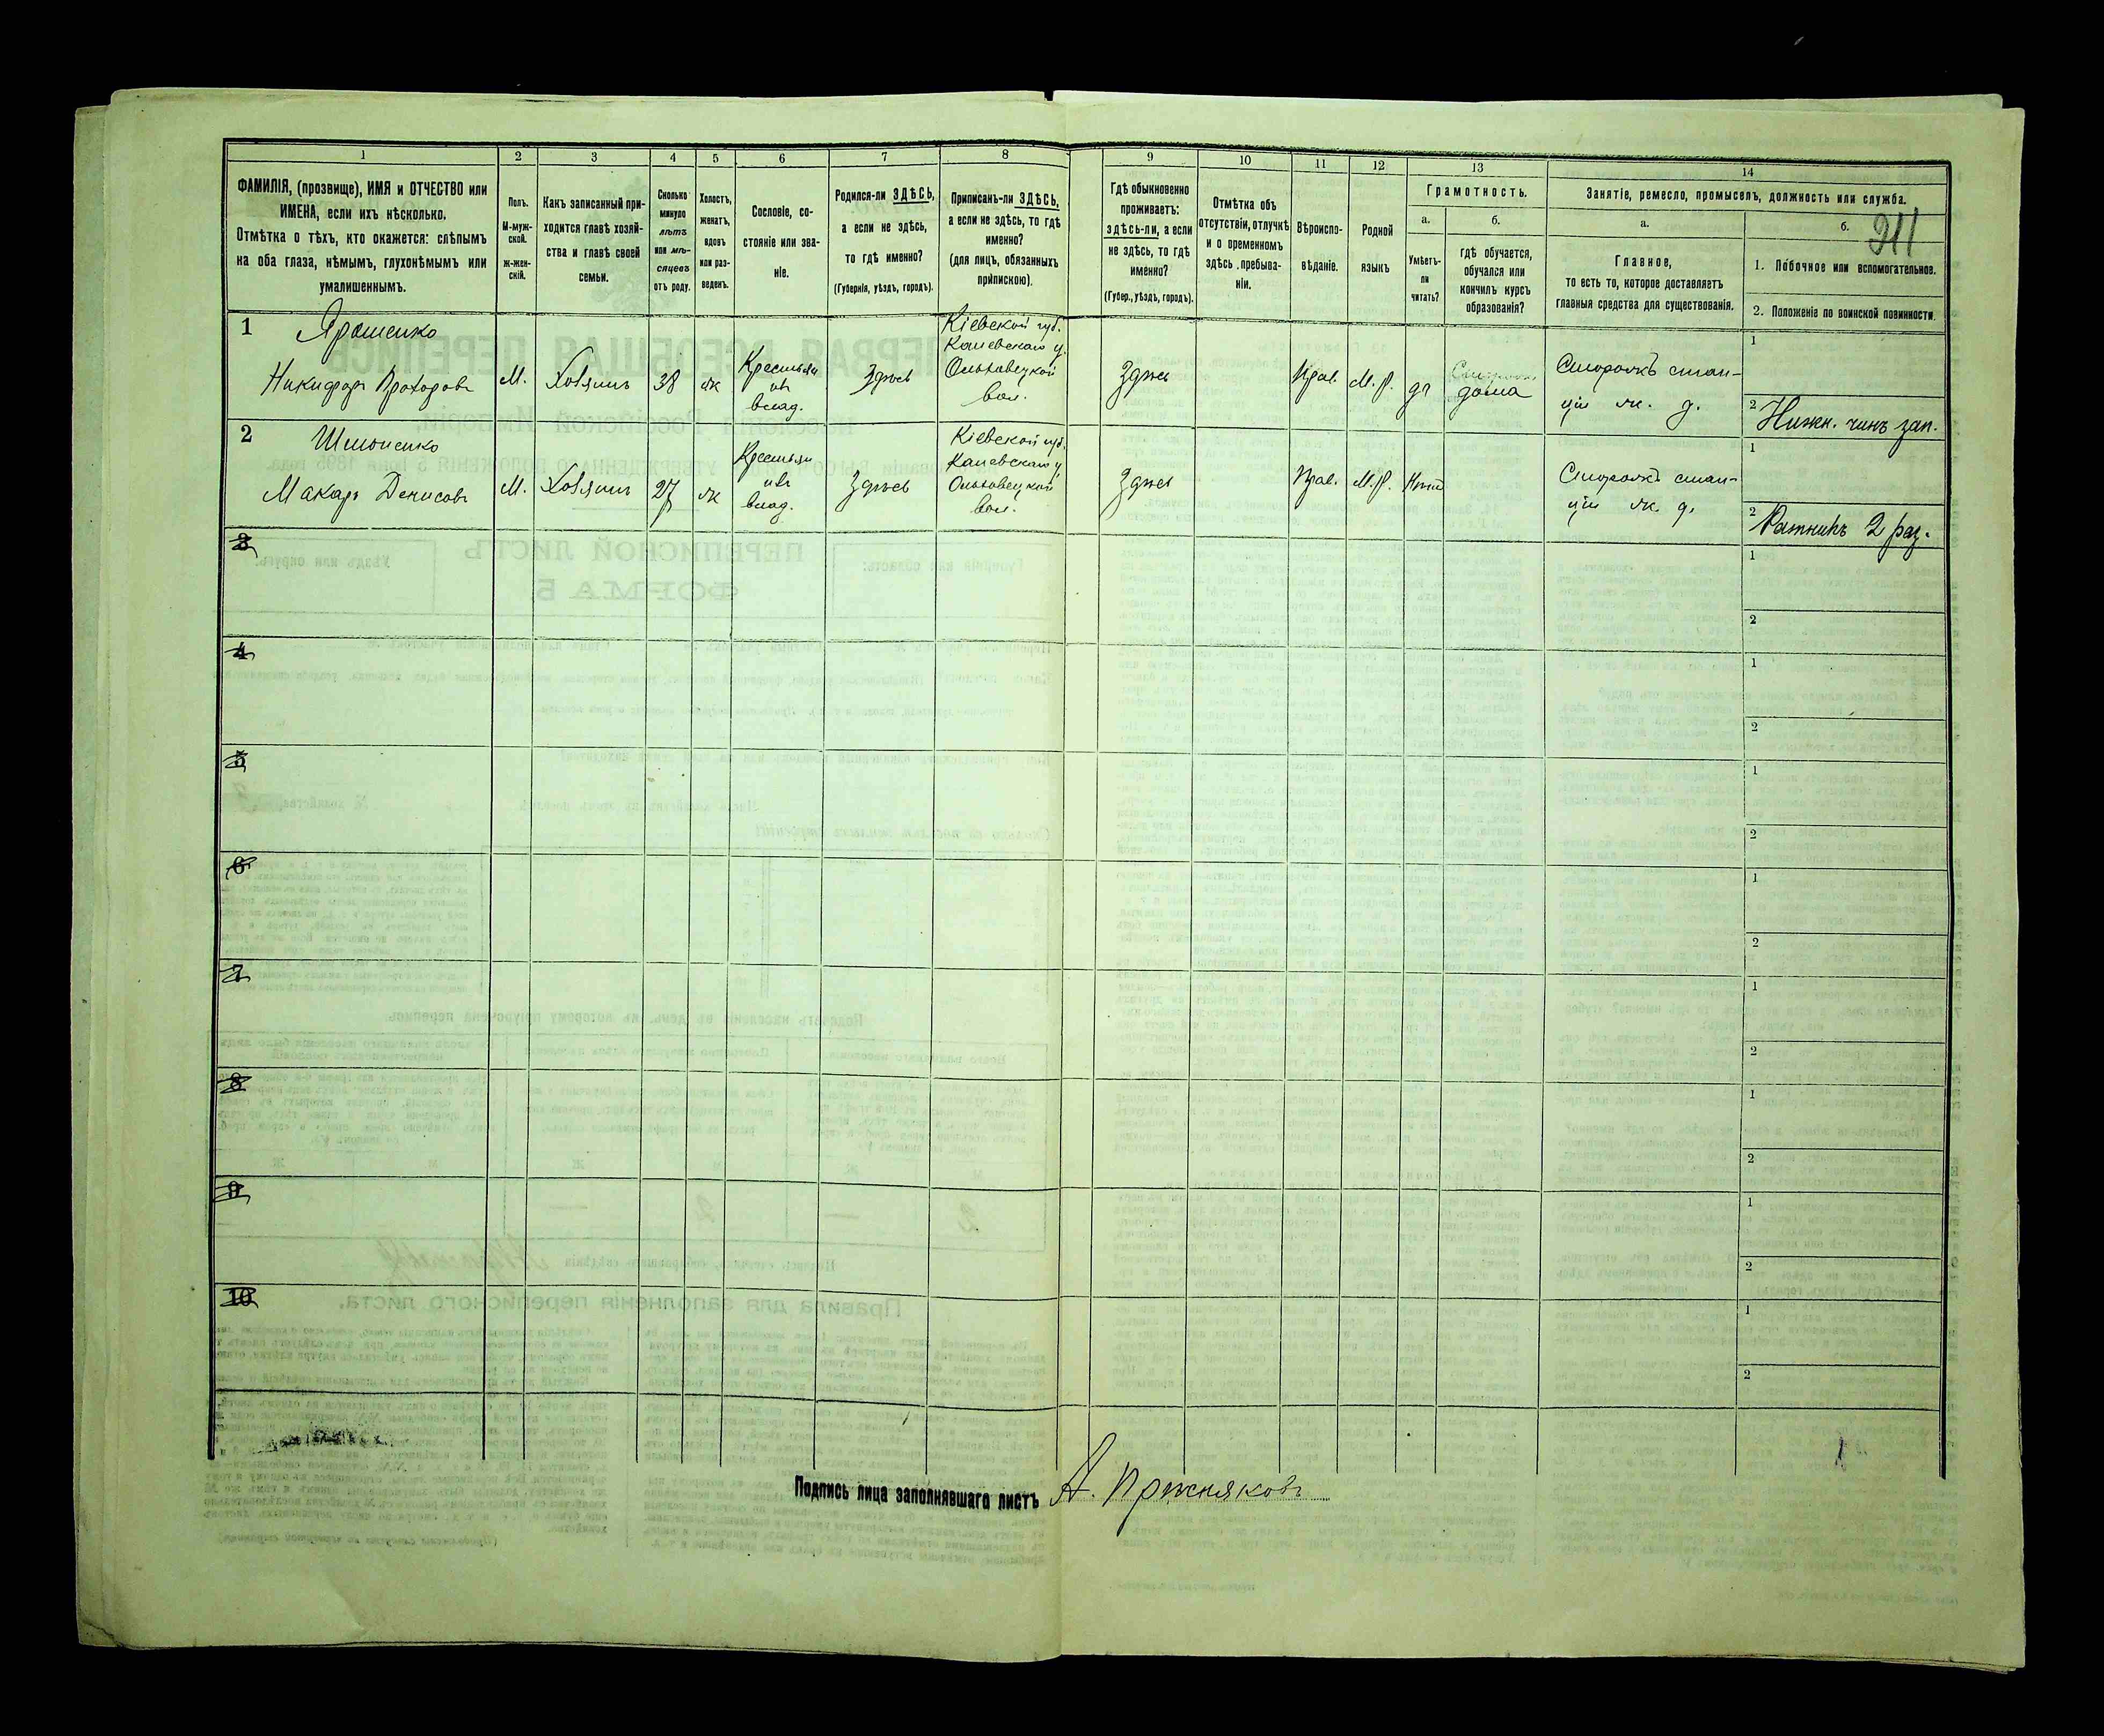 1 2 3 4 5 6 7 8 9 10 11 12 13 14
ФАМИЛІЯ, (прозвище), ИМЯ и ОТЧЕСТВО или
ИМЕНА, если ихъ нѣсколько.
Отмѣтка о тѣхъ, кто окажется: слѣпымъ
на оба глаза, нѣмымъ, глухонѣмымъ или
умалишеннымъ.
Полъ.
М-муж-
ской.
ж-жен-
скій.
Какъ записанный при-
ходится главѣ хозяй-
ства и главѣ своей
семьи.
Сколько
минуло
лѣтъ
или мѣ-
сяцевъ
отъ роду.
Холостъ,
женатъ,
вдовъ
или раз-
веденъ.
Сословіе, со-
стояніе или зва-
ніе.
Родился-ли ЗДѢСЬ,
а если не здѣсь,
то гдѣ именно?
(Губернія, уѣздъ, городъ).
Приписанъ-ли ЗДѢСЬ,
а если не здѣсь, то гдѣ
именно?
(для лицъ, обязанныхъ
припискою).
Гдѣ обыкновенно
проживаетъ:
здѣсь-ли, а если
не здѣсь, то гдѣ
именно?
(Губер., уѣздъ, городъ).
Отмѣтка объ
отсутствіи, отлучкѣ
и о временномъ
здѣсь пребыва-
ніи.
Вѣроиспо-
вѣданіе.
Родной
языкъ
Грамотность.
а.
Умѣетъ-
ли
читать?
б.
гдѣ обучается,
обучался или
кончилъ курсъ
образованія?
Занятіе, ремесло, промыселъ, должность или служба.
а.
Главное,
то есть то, которое доставляетъ
главныя средства для существованія.
б.
311
1. Побочное или вспомогательное.
2. Положеніе по воинской повинности.
1
Ярошенко
Никифоръ Прохоровъ
М.
Хозяинъ
38
ж
Крестьян
ъ
влад.
Здѣсь
Кіевской губ.
Каневскаго у.
Ольховецкой
вол.
Здѣсь
Прав.
М.р.
да
дома
Сторожъ стан-
ціи ж. д.
1
2 Нижн. чинъ зап.
2
Шимоненко
Макаръ Денисовъ
М.
Хозяинъ
27
ж
Крестьян
влад.
Здѣсь
Кіевской губ.
Каневскаго у.
Ольховецкой
вол.
Здѣсь
Прав.
М.р.
Нѣтъ
Сторожъ стан-
ціи ж. д.
1
2 Ратникъ 2 раз.
3
1
2
4
1
2
5
1
2
6
1
2
7
1
2
8
1
2
9
1
2
10
1
2
Подпись лица заполнявшаго листъ А. Прѣсняковъ